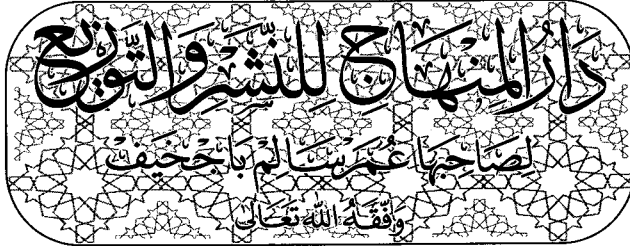 دَارُ المِنْهَاجِ لِلنَّشْرِ وَالتَّوْزِيعِ
لِصَاحِبِهَا عُمَرَ سَالِم بَاجْخَيْف
وَفَّقَهُ اللّٰهُ تَعَالَى